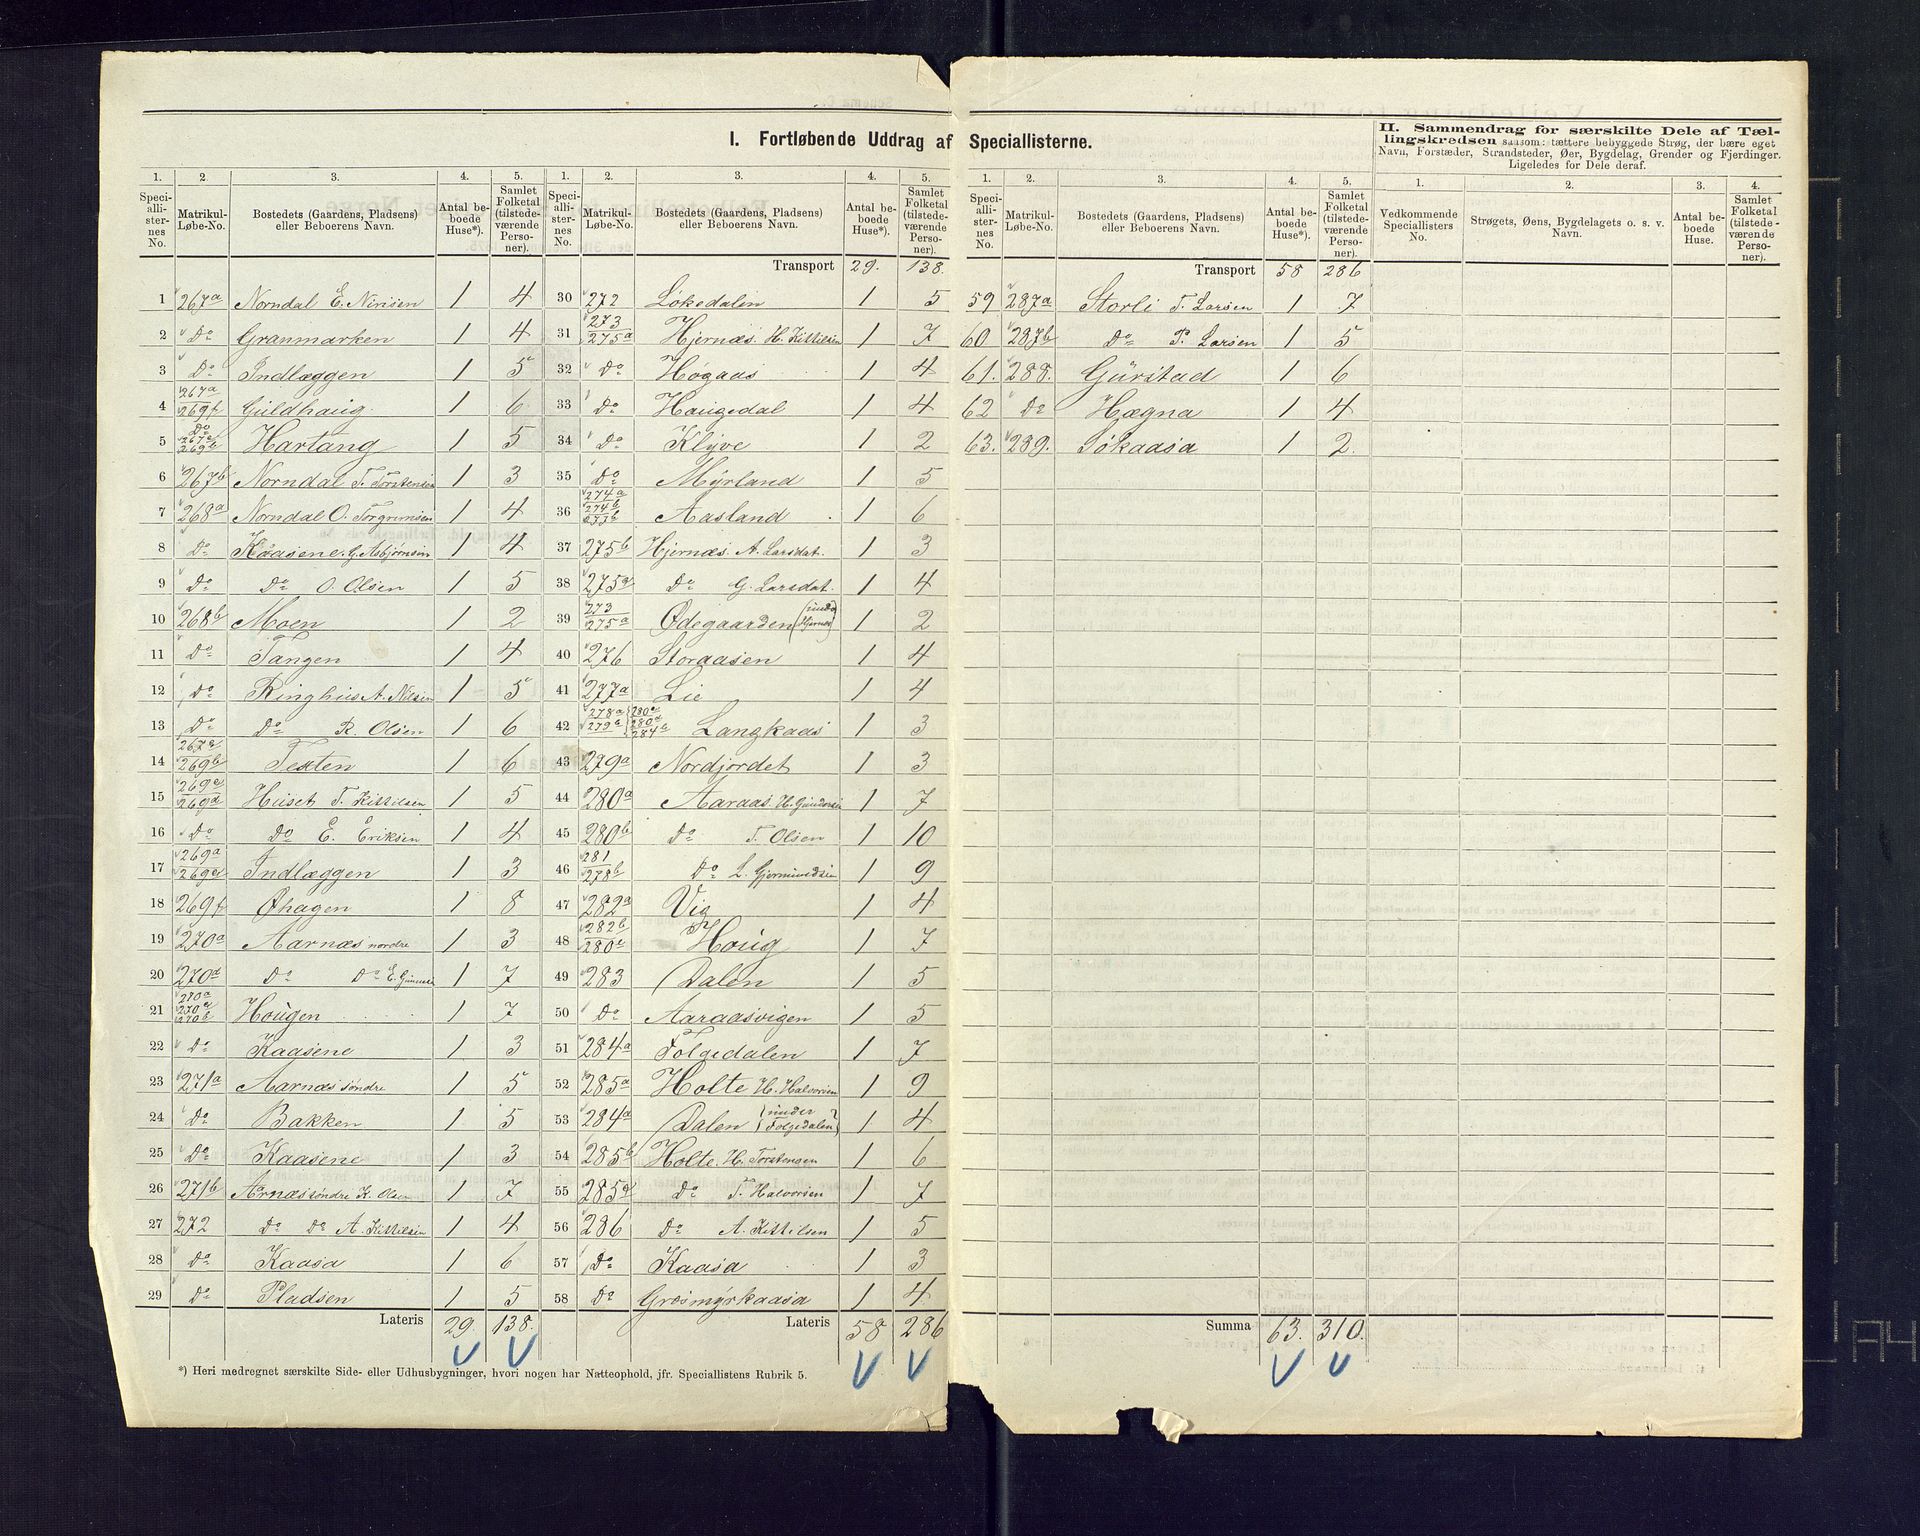 I. Fortløbende Uddrag af Speciallisterne.
II. Sammendrag for særskilte Dele af Tællingskredsen saasom: tættere bebyggede Strøg, der bære eget Navn, Forstæder, Strandsteder, Øer, Bygdelag, Grender og Fjerdinger. Ligeledes for Dele deraf.
1. 2. 3. 4. 5. 1. 2. 3. 4. 5. 1. 2. 3. 4. 5. 1. 2. 3. 4.
Speciallisternes No. Matrikul-Løbe-No. Bostedets (Gaardens, Pladsens) eller Beboerens Navn. Antal beboede Huse*). Samlet Folketal (tilstedeværende Personer).
Speciallisternes No. Matrikul-Løbe-No. Bostedets (Gaardens, Pladsens) eller Beboerens Navn. Antal beboede Huse*). Samlet Folketal (tilstedeværende Personer).
Speciallisternes No. Matrikul-Løbe-No. Bostedets (Gaardens, Pladsens) eller Beboerens Navn. Antal beboede Huse*). Samlet Folketal (tilstedeværende Personer).
Vedkommende Speciallisters No. Strøgets, Øens, Bygdelagets o. s. v. Navn. Antal beboede Huse. Samlet Folketal (tilstedeværende Personer).
1 267a Norndal E. Nirisen 1 4
2 Do Granmarken 1 4
3 Do Indlæggen 1 5
4 267a 269f Guldhaug 1 6
5 Do 267e 269b Hartang 1 5
6 267b Norndal T. Torstensen 1 3
7 268a Norndal O. Torgrimsen 1 4
8 Do Kaasene G. Asbjørnsen 1 4
9 Do Do O. Olsen 1 5
10 268b Moen 1 2
11 Do Tangen 1 4
12 Do Ringhus A. Nilsen 1 5
13 Do Do R. Olsen 1 6
14 267e 269b Texten 1 6
15 269c 269d Huset T. Kittilsen 1 5
16 Do Do E. Eriksen 1 4
17 269a 269e Indlæggen 1 3
18 269f Øhagen 1 8
19 270a Aarnæs nordre 1 3
20 270d Do Do E. 1 7
21 270a 270c 270b Hougen 1 7
22 Do Kaasene 1 3
23 271a Aarnæs søndre 1 5
24 Do Bakken 1 5
25 Do Kaasene 1 3
26 271b Arnæs søndre K. Olsen 1 7
27 272 Do Do A. Kittilsen 1 4
28 Do Kaasa 1 6
29 Do Pladsen 1 5
Lateris 29. 138.
*) Heri medregnet særskilte Side- eller Udhusbygninger, hvori nogen har Natteophold, jfr. Speciallistens Rubrik 5.
Transport 29. 138.
30 272 Løkedalen 1 5
31 273 275a Hjernæs. H. Kittilsen 1 7
32 Do Høgaas 1 4
33 Do Haugedal 1 4
34 Do Klyve 1 2
35 Do Myrland 1 5
36 274a 274b 277b Aasland 1 6
37 275b Hjernæs. A. Larsdat. 1 3
38 275a Do G. Larsdat. 1 4
39 273 275a Ødegaarden (under Hjernes) 1 2
40 276 Storaasen 1 4
41 277a Lie 1 4
42 278a 279b 280c 280a 284b Langkaas 1 3
43 279a Nordjordet 1 3
44 280a Aaraas. H. Gundersen 1 7
45 280b Do T. Olsen 1 10
46 281 278b Do L. Gjermundsen 1 9
47 282a Vig 1 4
48 282b 280c Houg 1 7
49 283 Dalen 1 5
50 Do Aaraasvigen 1 5
51 284a Folgedalen 1 7
52 285a Holte H. Halvorsen 1 9
53 284a Dalen (under Folgedalen) 1 4
54 285b Holte. H. Torstensen 1 6
55 285a Do T. Halvorsen 1 7
56 286 Do A. Kittilsen 1 5
57 Do Kaasa 1 3
58 Do Græsmyrkaasa 1 4
Lateris 58 286
Transport 58 286
59 287a Storli T. Larsen 1 7
60 287b Do P. Larsen 1 5
61. 288. Gurstad 1 6
62 Do Hægna 1 4
63. 289. Løkaasa 1 2.
Summa 63. 310.